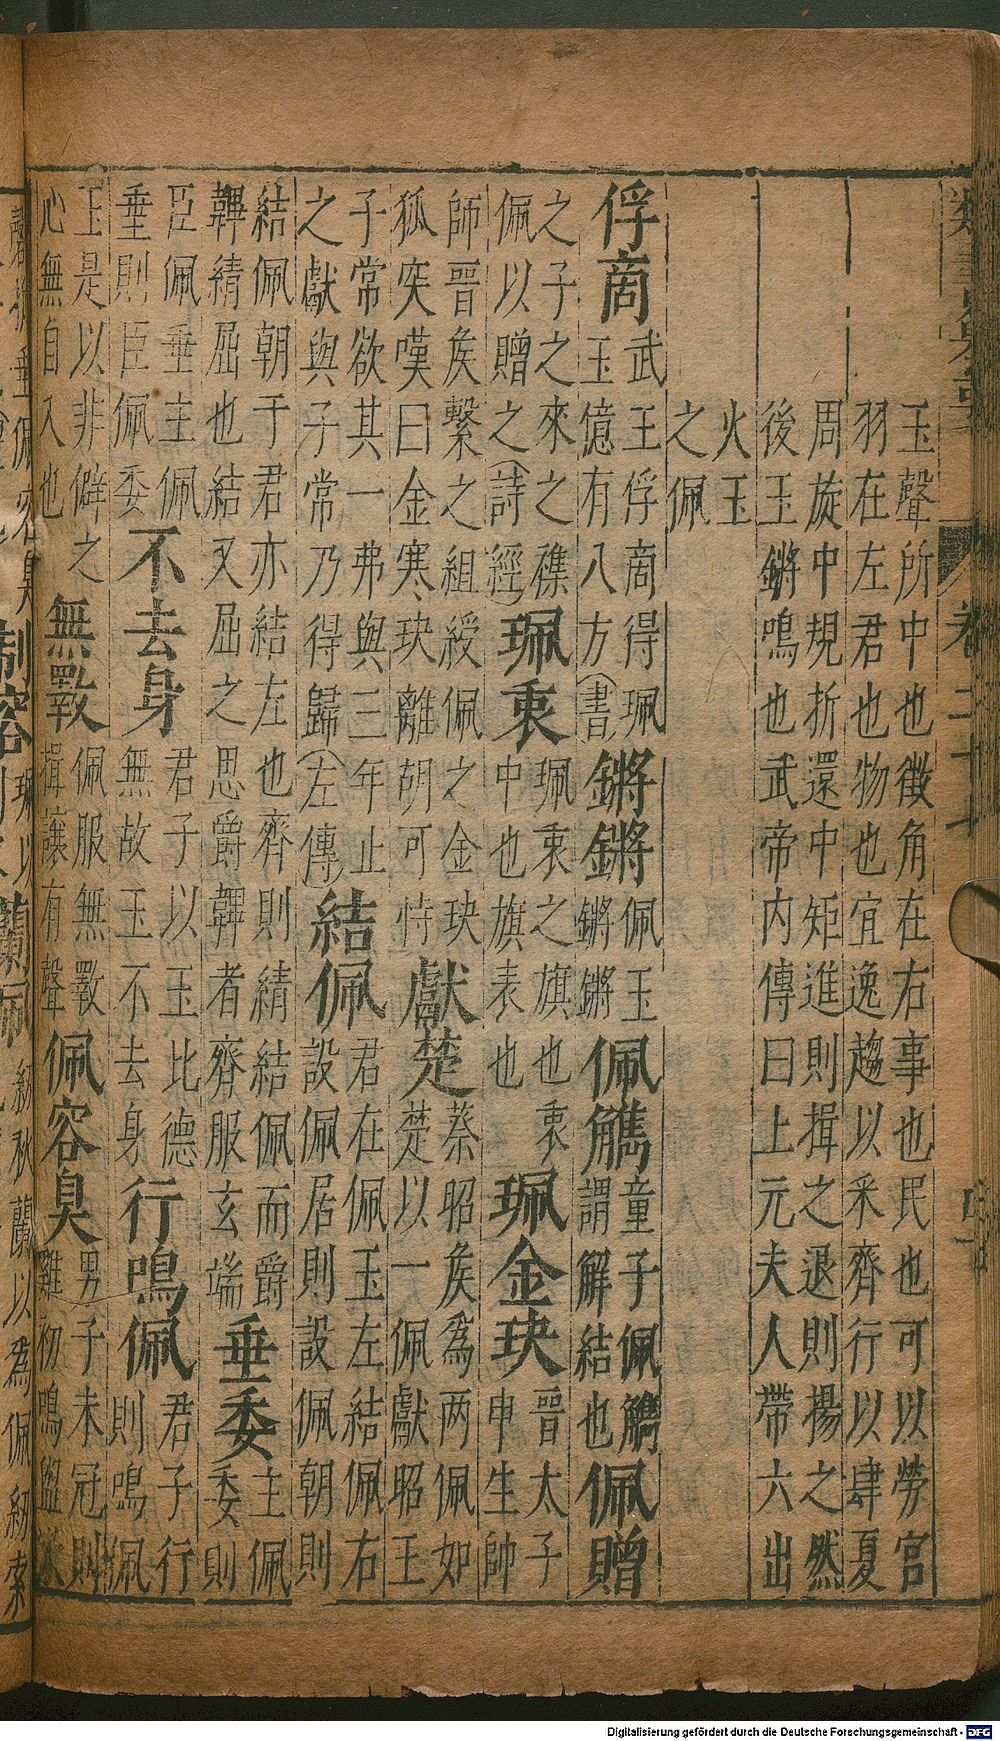 玉聲所中也徵角在右事也民也可以勞宮
羽在左君也物也宜逸趨以采齊行以肆夏
周旋中規折還中矩進則揖之退則揚之然
後玉鏘鳴也武帝内傳曰上元夫人帶六出
火玉
之佩
俘商
武王俘商得珮
玉億有八方(書)
鏘鏘
佩玉
鏘鏘
佩觿
童子佩觿
謂解結也
佩贈
之子之來之襍
佩以贈之(詩經)
珮衷
珮衷之旗也衷
中也旗表也
珮金玦
晉太子
申生帥
師晉矦繫之組綬佩之金玦
狐突嘆曰金寒玦離胡可恃
獻楚
蔡昭矦為两佩如
楚以一佩獻昭王
子常欲其一弗與三年止
之獻與子常乃得歸(左傳)
結佩
君在佩玉左結佩右
設佩居則設佩朝則
結佩朝于君亦結左也齊則綪結佩而爵
韠綪屈也結又屈之思爵韠者齊服玄端
垂委
主佩
委則
臣佩垂主佩
垂則臣佩委
不去身
君子以玉比德
無故玉不去身
行鳴佩
君子行
則鳴佩
玉是以非僻之
心無自入也
無斁
佩服無斁
揖讓有聲
佩容臭
男子未冠則
雞初鳴盥漱
制容
蘭佩
紉秋蘭以為佩紉索
類書
卷二十
Digitalisierung gefördert durch die Deutsche Forschungsgemeinschaft - DFG